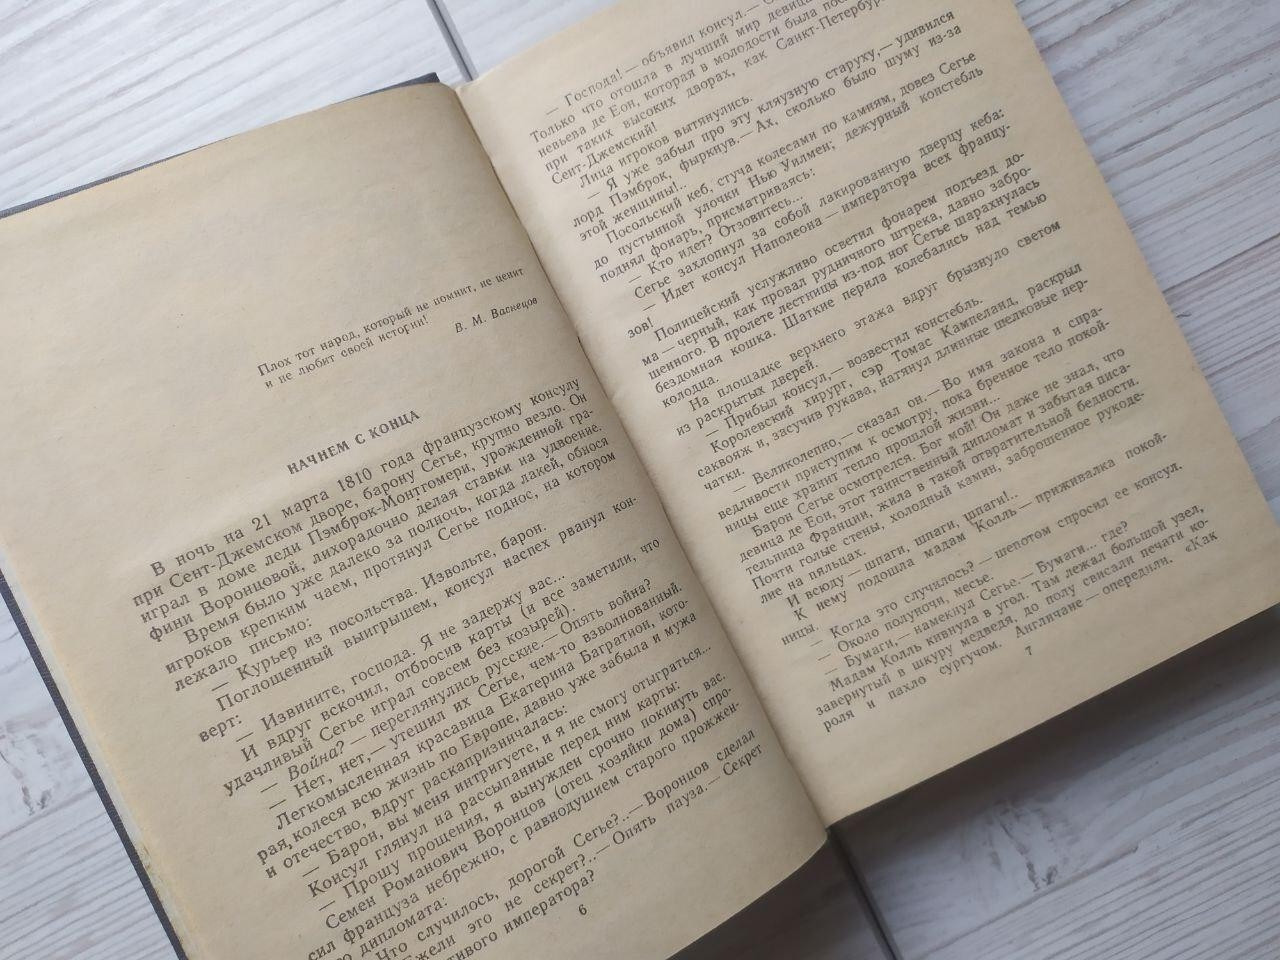 Плох тот народ, который не помнит, не ценит
и не любит своей истории!
В. М. Васнецов
НАЧНЕМ С КОНЦА
В ночь на 21 марта 1810 года французскому консулу
при Сент-Джемском дворе, барону Сегье, крупно везло. Он
играл в доме леди Пэмброк-Монтгомери, урожденной гра-
фини Воронцовой, лихорадочно делая ставки на удвоение.
Время было уже далеко за полночь, когда лакей, обнося
игроков крепким чаем, протянул Сегье поднос, на котором
лежало письмо:
— Курьер из посольства. Извольте, барон.
Поглощенный выигрышем, консул наспех рванул кон-
верт:
— Извините, господа. Я не задержу вас...
И вдруг вскочил, отбросив карты (и все заметили, что
удачливый Сегье играл совсем без козырей).
— Война? — переглянулись русские.— Опять война?
— Нет, нет,— утешил их Сегье, чем-то взволнованный.
Легкомысленная красавица Екатерина Багратион, кото-
рая, колеся всю жизнь по Европе, давно уже забыла и мужа
и отечество, вдруг раскапризничалась:
— Барон, вы меня интригуете, и я не смогу отыграться...
Консул глянул на рассыпанные перед ним карты:
— Прошу прощения, я вынужден срочно покинуть вас.
Семен Романович Воронцов (отец хозяйки дома) спро-
сил француза небрежно, с равнодушием старого прожжен-
дипломата:
Что случилось, дорогой Сегье?..— Воронцов сделал
это не секрет?..— Опять пауза.— Секрет
императора?
6
— Господа! — объявил консул.—
Только что отошла в лучший мир девица
невьева де Еон, которая в молодости была
при таких высоких дворах, как Санкт-Петербург
Сент-Джемский!
Лица игроков вытянулись.
— Я уже забыл про эту кляузную старуху,— удивился
лорд Пэмброк, фыркнув.— Ах, сколько было шуму из-за
этой женщины!..
Посольский кеб, стуча колесами по камням, довез Сегье
до пустынной улочки Нью Уилмен; дежурный констебль
поднял фонарь, присматриваясь:
— Кто идет? Отзовитесь...
Сегье захлопнул за собой лакированную дверцу кеба:
— Идет консул Наполеона — императора всех францу-
зов!
Полицейский услужливо осветил фонарем подъезд до-
ма — черный, как провал рудничного штрека, давно забро-
шенного. В пролете лестницы из-под ног Сегье шарахнулась
бездомная кошка. Шаткие перила колебались над темью
колодца.
На площадке верхнего этажа вдруг брызнуло светом
из раскрытых дверей.
— Прибыл консул,— возвестил констебль.
Королевский хирург, сэр Томас Кампеланд, раскрыл
саквояж и, засучив рукава, натянул длинные шелковые пер-
чатки.
— Великолепно,— сказал он.— Во имя закона и спра-
ведливости приступим к осмотру, пока бренное тело покой-
ницы еще хранит тепло прошлой жизни...
Барон Сегье осмотрелся. Бог мой! Он даже не знал, что
девица де Еон, этот таинственный дипломат и забытая писа-
тельница Франции, жила в такой отвратительной бедности.
Почти голые стены, холодный камин, заброшенное рукоде-
лие на пяльцах.
И всюду — шпаги, шпаги, шпаги!..
К нему подошла мадам Колль — приживалка покой-
ницы.
— Когда это случилось? — шепотом спросил ее консул.
— Около полуночи, месье.
— Бумаги,— намекнул Сегье.— Бумаги... где?
Мадам Колль кивнула в угол. Там лежал большой узел,
завернутый в шкуру медведя, до полу свисали печати ко-
роля и пахло сургучом. Англичане — опередили. «Как
7